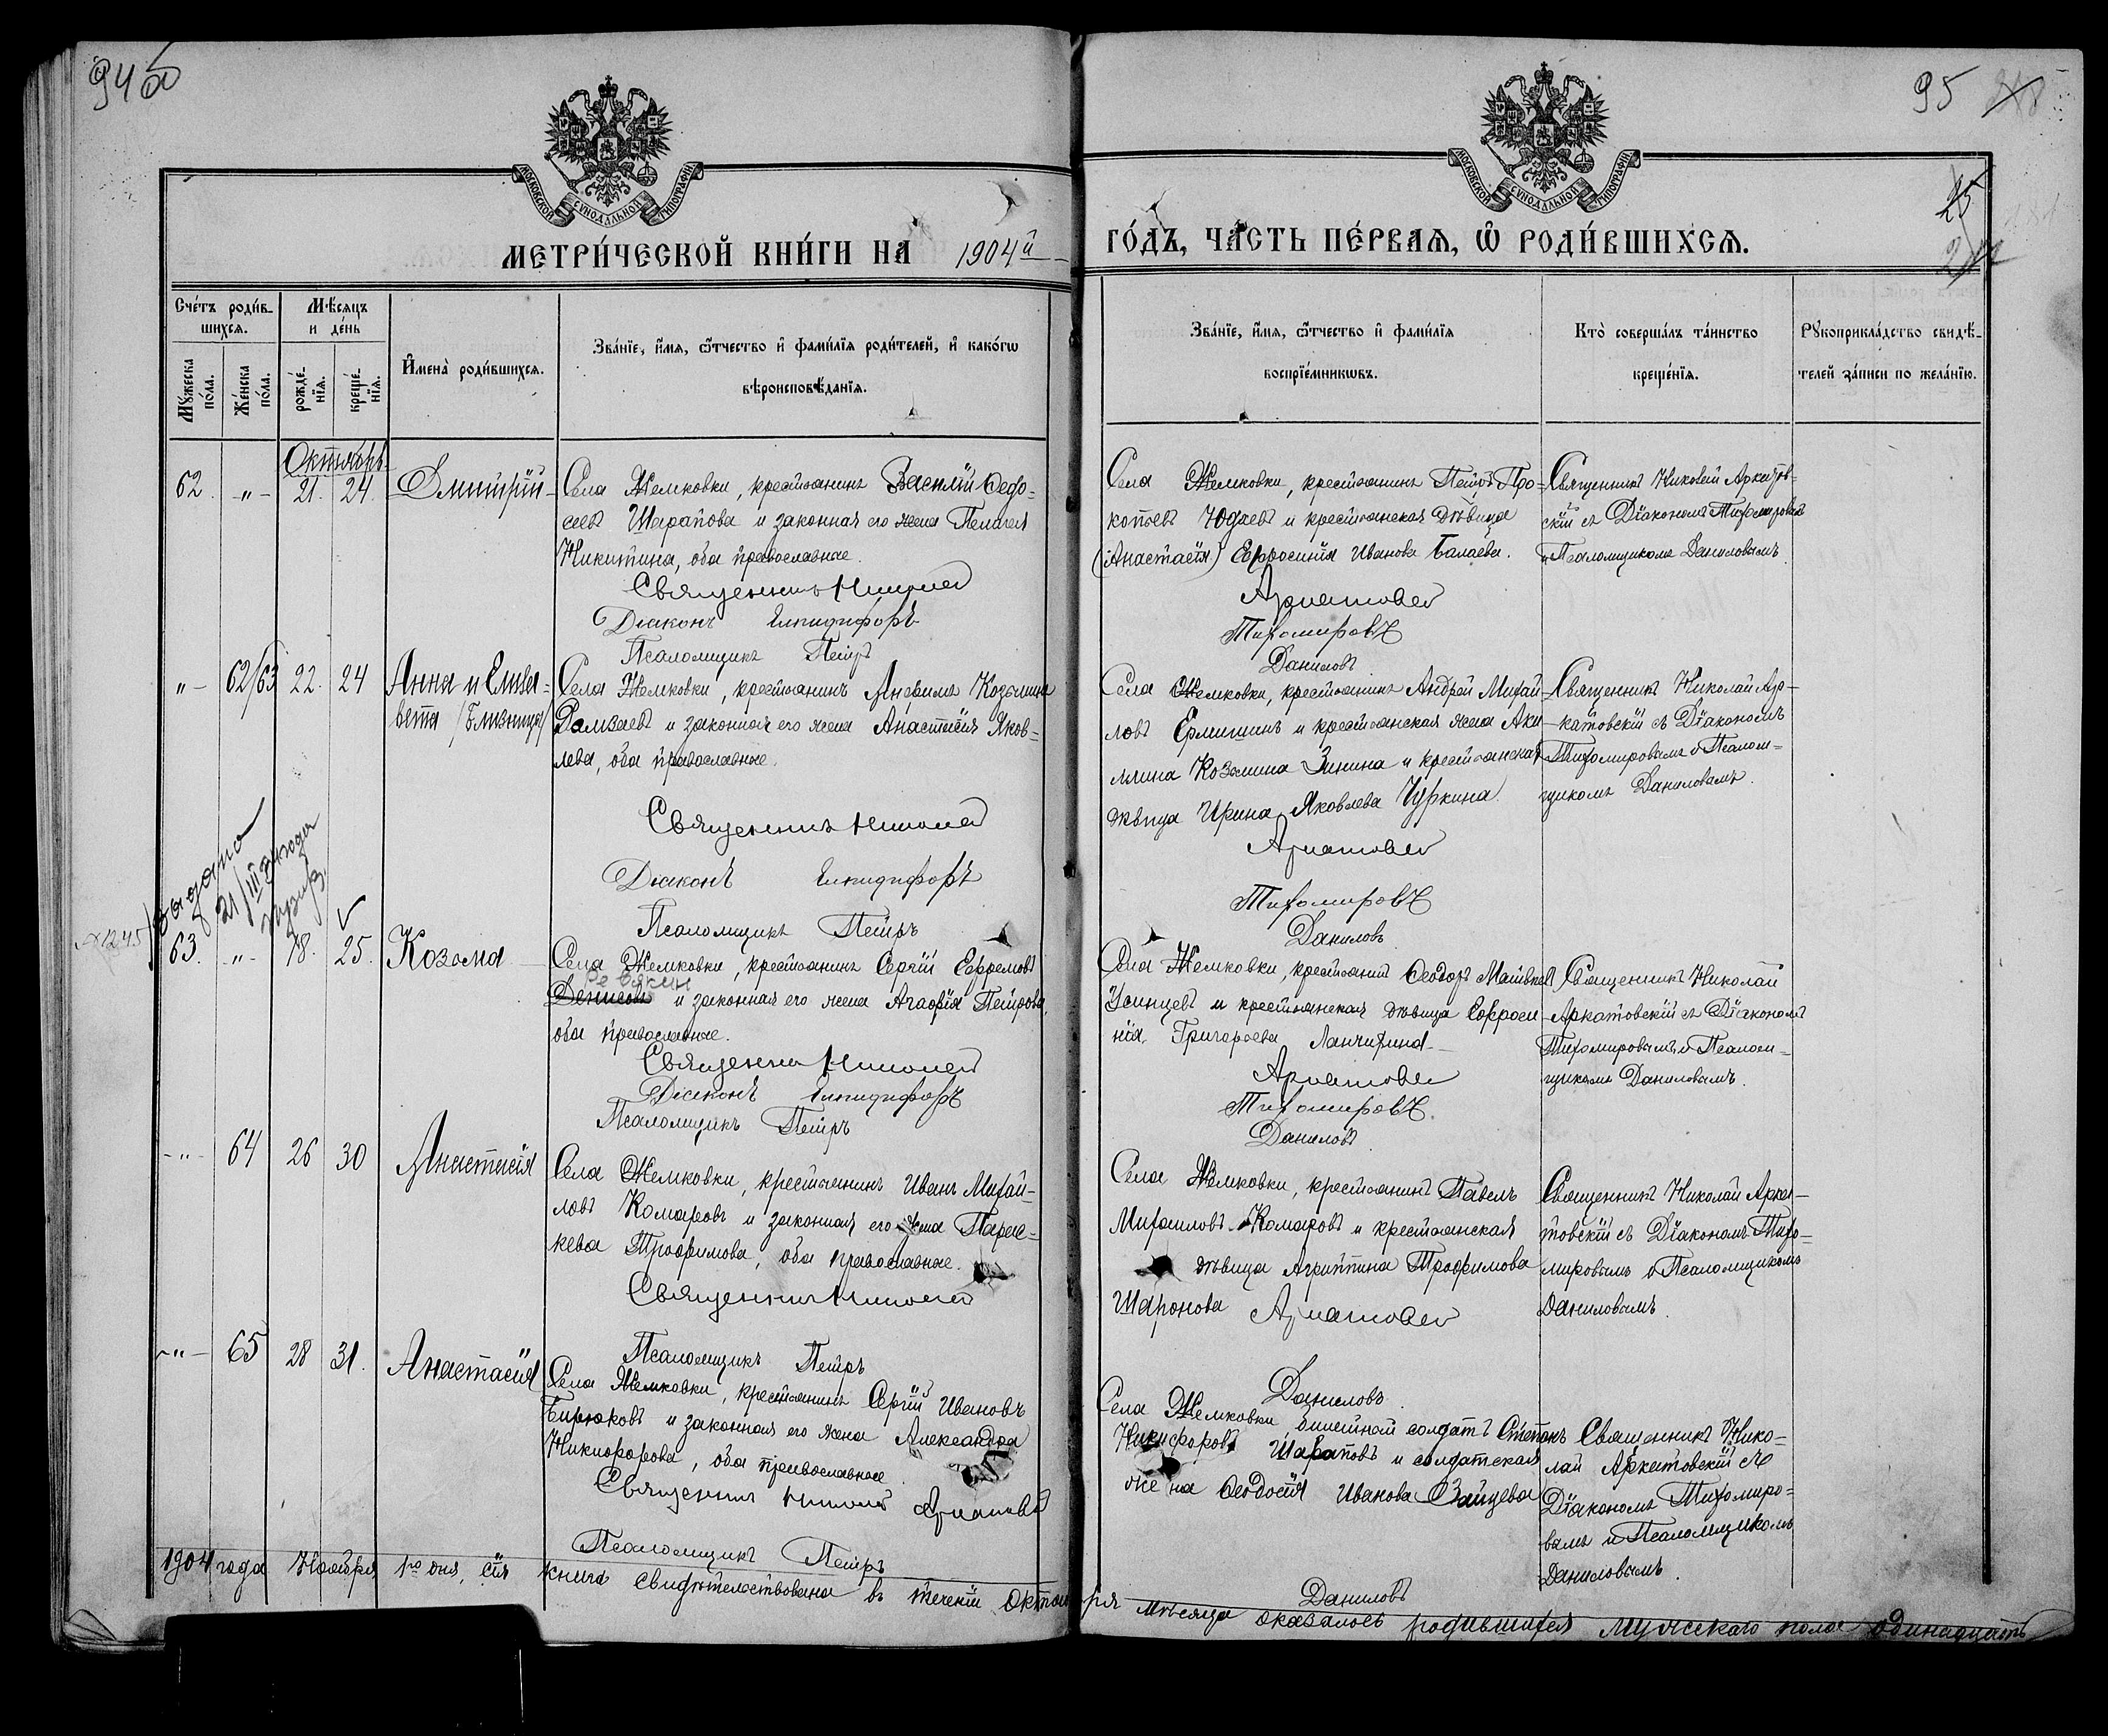 94 об
95
МОСКОВСКОЙ СѴНОДАЛЬНОЙ ТИПОГРАФІИ
МОСКОВСКОЙ СѴНОДАЛЬНОЙ ТИПОГРАФІИ
25
МЕТРИ́ЧЕСКОЙ КНИ́ГИ НА 1904й
ГО́ДЪ, ЧА́СТЬ ПЕ́РВАѦ, Ѡ҆ РОДИ́ВШИХСѦ.
Сче́тъ роди́в-
шихся.
Мѣ́сяцъ
и де́нь
Мꙋ́жеска по́ла.
Же́нска по́ла.
рожде́-
нїя.
креще́-
нїя.
И҆мена̀ роди́вшихся.
Зва́нїе, и҆́мя, ѻ҆́тчество и҆ фами́лїя роди́телей, и҆ како́гѡ
вѣроисповѣ́данїя.
Зва́нїе, и҆́мя, ѻ҆́тчество и҆ фами́лїя
воспрїе́мникѡвъ.
Кто̀ соверша́лъ та́инство
креще́нїя.
Рꙋкоприкла́дство свидѣ́-
телей за́писи по жела́нїю.
Октябрь
62. -„- 21. 24. Дмитрій
Села Жемковки, крестьянинъ Василій Ѳедо-
сеевъ Шарапова и законная его жена Пелагея
Никитина, оба православные.
Священникъ Николай
Діаконъ Елпидифоръ
Псаломщикъ Петръ
Села Жемковки, крестьянинъ Петръ Про-
копьевъ Юдаевъ и крестьянская дѣвица
(Анастасія) Ефросинія Иванова Балаева.
Аркатовскій
Тихомировъ
Даниловъ
Священникъ Николай Аркатов-
скій съ Діакономъ Тихомировымъ
и Псаломщикомъ Даниловымъ.
„- 62/63 22. 24 Анна и Елиза-
вета /Близницы/
Села Жемковки, крестьянинъ Анфимъ Козьминъ
Рамзаевъ и законная его жена Анастасія Яков-
лева, оба православные.
Священникъ Николай
Діаконъ Елпидифоръ
Псаломщикъ Петръ
Села Жемковки, крестьянинъ Андрей Михай-
ловъ Ермишинъ и крестьянская жена Аки-
лина Козьмина Зинина и крестьянская
дѣвица Ирина Яковлева Чуркина.
Аркатовскій
Тихомировъ
Даниловъ
Священникъ Николай Ар-
катовскій съ Діакономъ
Тихомировымъ и Псалом-
щикомъ Даниловымъ.
№ 1245 / выдано
21/III
63. -„- 18. 25. Козьма
Села Жемковки, крестьянинъ Сергій Ефремовъ
Ревякин
Денисовъ и законная его жена Агаѳія Петрова,
оба православные.
Священникъ Николай
Діаконъ Елпидифоръ
Псаломщикъ Петръ
Села Жемковки, крестьянинъ Ѳеодоръ Матвѣевъ
Усинцевъ и крестьянская дѣвица Ефроси-
нія Григорьева Ланчихина
Аркатовскій
Тихомировъ.
Даниловъ
Священникъ Николай
Аркатовскій съ Діакономъ
Тихомировымъ и Псалом-
щикомъ Даниловымъ.
-„- 64 26 30 Анастасія
Села Жемковки, крестьянинъ Иванъ Михай-
ловъ Комаровъ и законная его жена Парас-
кева Трофимова, оба православные.
Священникъ Николай
Псаломщикъ Петръ
Села Жемковки, крестьянинъ Павелъ
Михаиловъ Комаровъ и крестьянская
дѣвица Агриппина Трофимова
Шаронова Аркатовскій
Даниловъ
Священникъ Николай Арка-
товскій съ Діакономъ Тихо-
мировымъ и Псаломщикомъ
Даниловымъ.
-„- 65 28 31. Анастасія
Села Жемковки, крестьянинъ Сергій Ивановъ
Бирюковъ и законная его жена Александра
Никифорова, оба православные.
Священникъ Николай Аркатовскій
Псаломщикъ Петръ
Села Жемковки билетной солдатъ Степанъ
Никифоровъ Шараповъ и солдатская
жена Ѳеодосія Иванова Зайцева
Даниловъ
Священникъ Нико-
лай Аркатовскій съ
Діакономъ Тихомиро-
вымъ и Псаломщикомъ
Даниловымъ.
1904 года Ноября 1го дня, сія книга свидѣтельствована въ теченіи октября мѣсяца оказалось родившихся мужскаго пола одинадцать